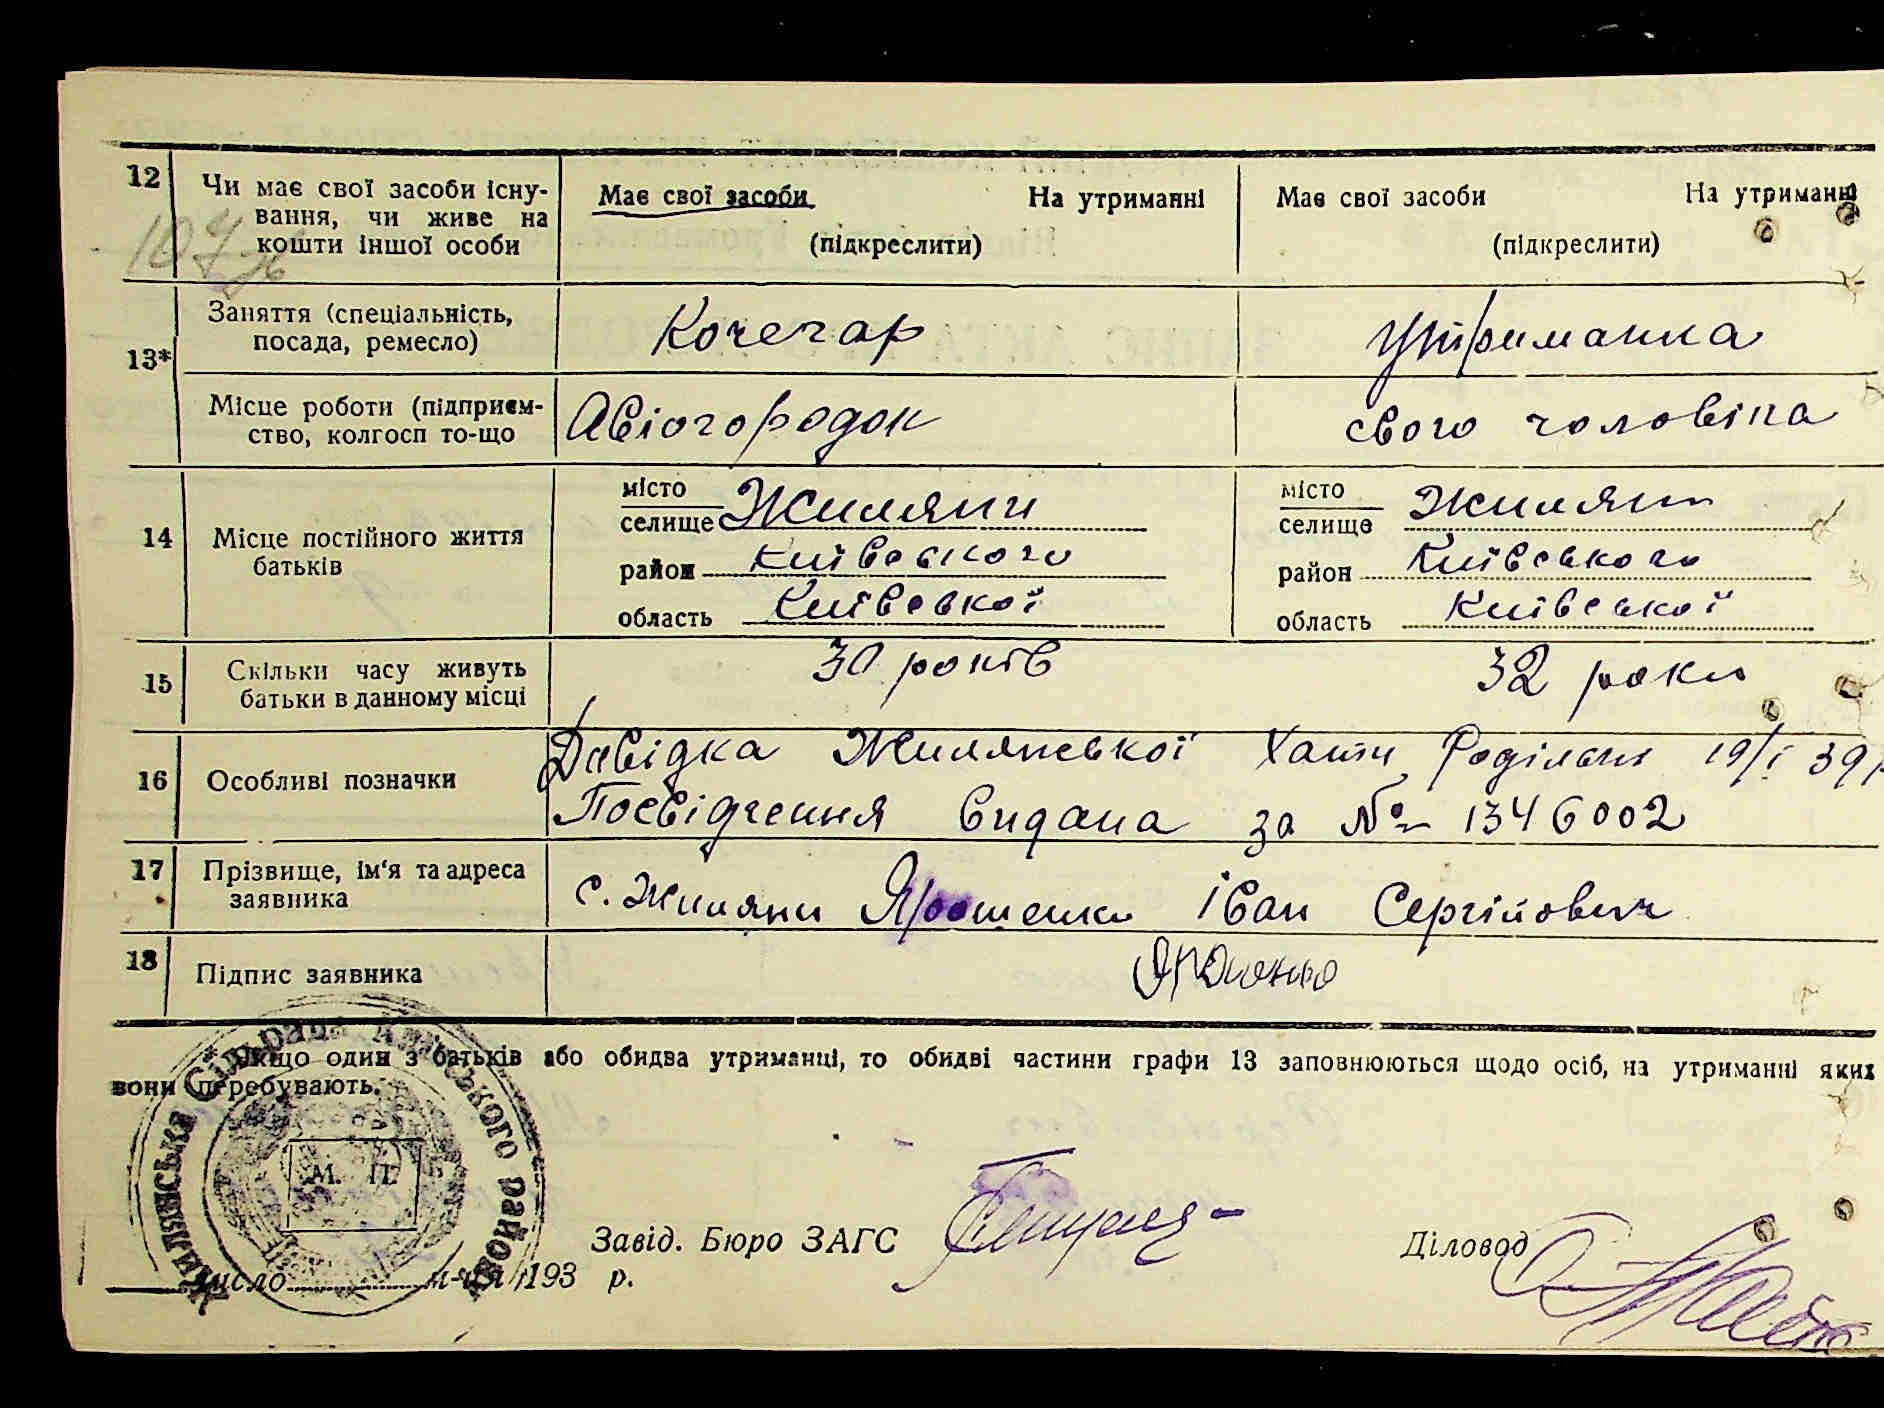 12 Чи має свої засоби існу-
вання, чи живе на
кошти іншої особи
Має свої засоби На утриманні
(підкреслити)
Має свої засоби На утриманні
(підкреслити)
107
13* Заняття (спеціальність,
посада, ремесло)
Кочегар
утриманка
Місце роботи (підприєм-
ство, колгосп то-що
Авіогородок
свого чоловіка
14 Місце постійного життя
батьків
місто
селище Жиляни
район Київського
область Київської
місто
селище Жиляни
район Київського
область Київської
15 Скільки часу живуть
батьки в данному місці
30 років
32 роки
16 Особливі позначки
Давідка Жилянської Хати Родільні 19/I 39
Посвідчення видана за № 1346002
17 Прізвище, ім'я та адреса
заявника
с. Жиляни Ярошенко Іван Сергійович
18 Підпис заявника
* Якщо один з батьків або обидва утриманці, то обидві частини графи 13 заповнюються щодо осіб, на утриманні яких
вони перебувають.
Жилянська Сільрада Київського району
М. П.
Завід. Бюро ЗАГС
Діловод
число м-ця 193 р.